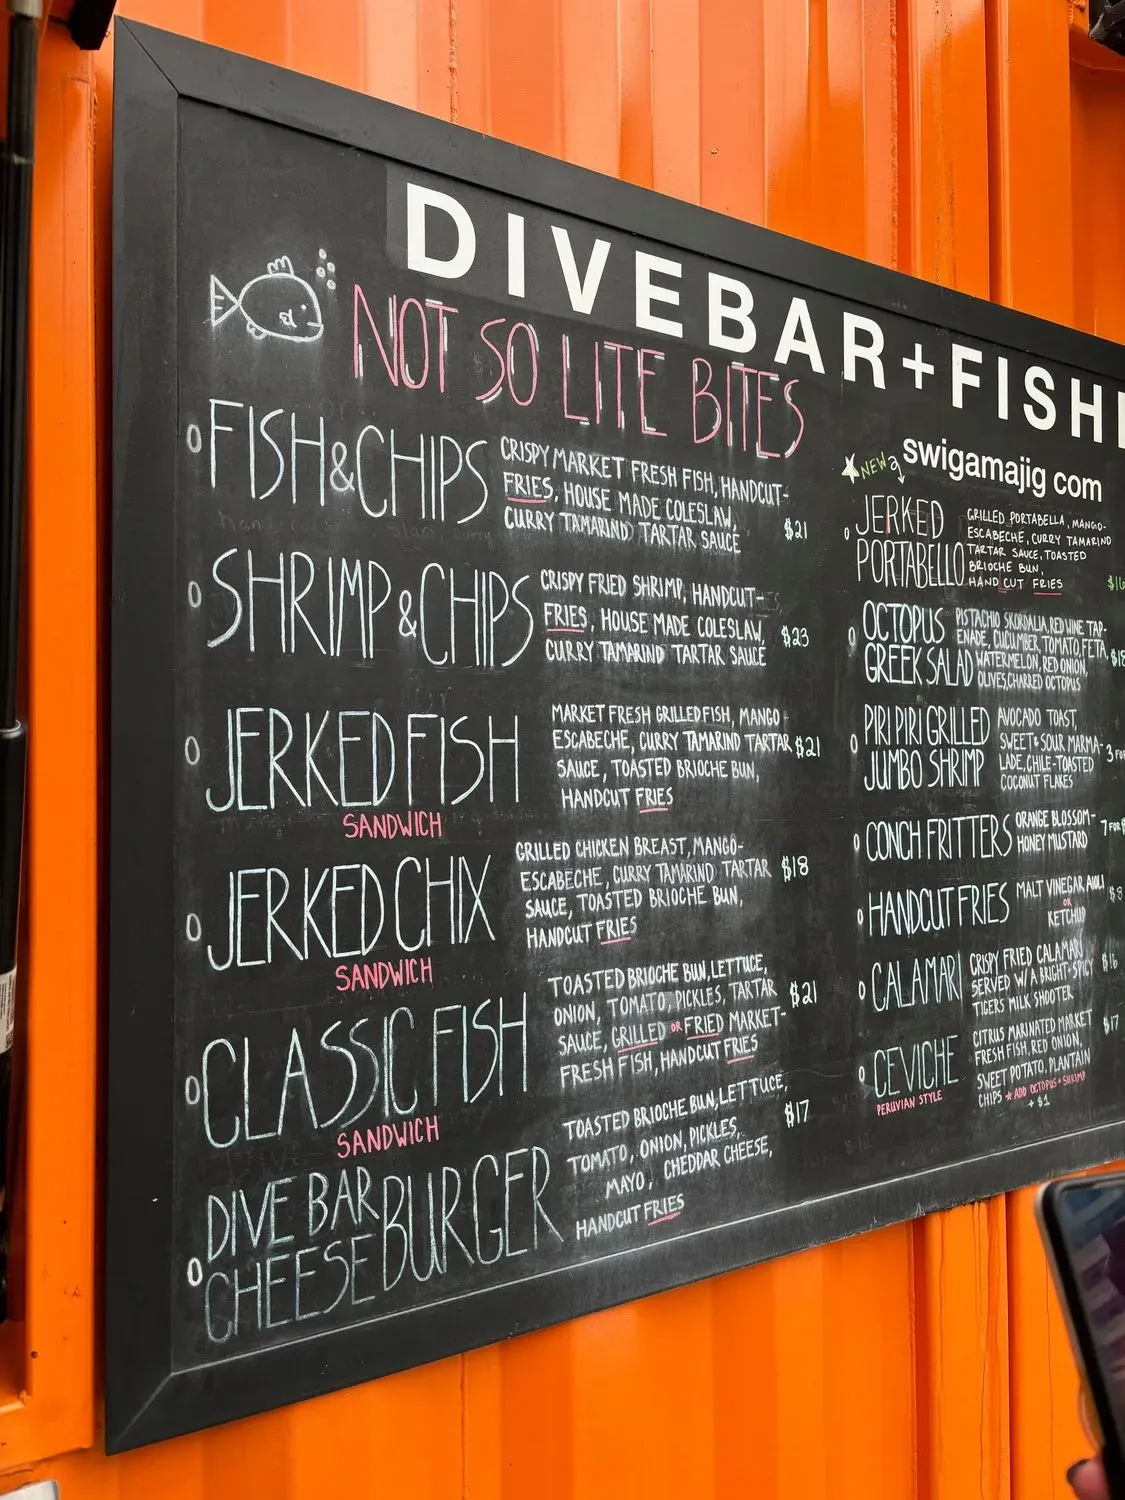 DIVEBAR+FISH
NOT SO LITE BITES
FISH & CHIPS
CRISPY MARKET FRESH FISH, HANDCUT-
FRIES, HOUSE MADE COLESLAW,
CURRY TAMARIND TARTAR SAUCE
$21
SHRIMP & CHIPS
CRISPY FRIED SHRIMP, HANDCUT-
FRIES, HOUSE MADE COLESLAW,
CURRY TAMARIND TARTAR SAUCE
$23
JERKED FISH
SANDWICH
MARKET FRESH GRILLED FISH, MANGO-
ESCABECHE, CURRY TAMARIND TARTAR
SAUCE, TOASTED BRIOCHE BUN,
HANDCUT FRIES
$21
JERKED CHIX
SANDWICH
GRILLED CHICKEN BREAST, MANGO-
ESCABECHE, CURRY TAMARIND TARTAR
SAUCE, TOASTED BRIOCHE BUN,
HANDCUT FRIES
$18
CLASSIC FISH
SANDWICH
TOASTED BRIOCHE BUN, LETTUCE,
ONION, TOMATO, PICKLES, TARTAR
SAUCE, GRILLED OR FRIED MARKET-
FRESH FISH, HANDCUT FRIES
$21
DIVE BAR
CHEESE BURGER
TOASTED BRIOCHE BUN, LETTUCE,
TOMATO, ONION, PICKLES,
MAYO, CHEDDAR CHEESE,
HANDCUT FRIES
$17
swigamajig com
NEW
JERKED
PORTABELLO
GRILLED PORTABELLA, MANGO-
ESCABECHE, CURRY TAMARIND
TARTAR SAUCE, TOASTED
BRIOCHE BUN,
HAND CUT FRIES
OCTOPUS
GREEK SALAD
PISTACHIO SKORDALIA, RED WINE TAP-
ENADE, CUCUMBER, TOMATO, FETA,
WATERMELON, RED ONION,
OLIVES, CHARRED OCTOPUS
PIRI PIRI GRILLED
JUMBO SHRIMP
AVOCADO TOAST,
SWEET & SOUR MARMA-
LADE, CHILE-TOASTED
COCONUT FLAKES
3 FOR
CONCH FRITTERS
ORANGE BLOSSOM-
HONEY MUSTARD
7 FOR
HANDCUT FRIES
MALT VINEGAR AIOLI
OR
KETCHUP
$8
CALAMARI
CRISPY FRIED CALAMARI
SERVED W/ A BRIGHT-SPICY
TIGERS MILK SHOOTER
$16
CEVICHE
PERUVIAN STYLE
CITRUS MARINATED MARKET
FRESH FISH, RED ONION,
SWEET POTATO, PLANTAIN
CHIPS ★ ADD OCTOPUS + SHRIMP
+ $1
$17